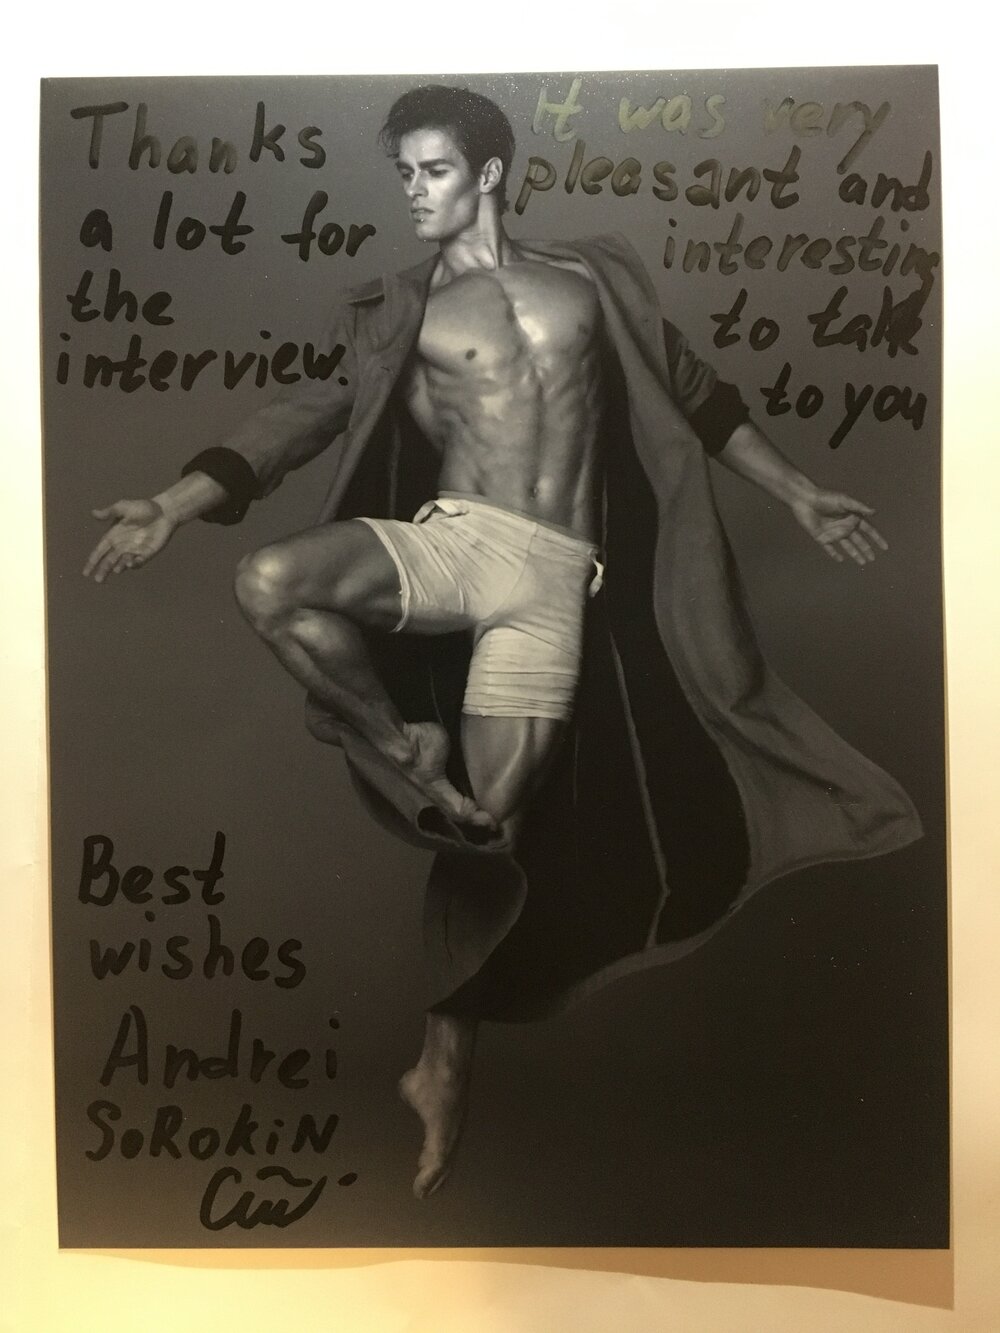 Thanks
a lot for
the
interview.
It was very
pleasant and
interesting
to talk
to you
Best
wishes
Andrei
SoRoKiN